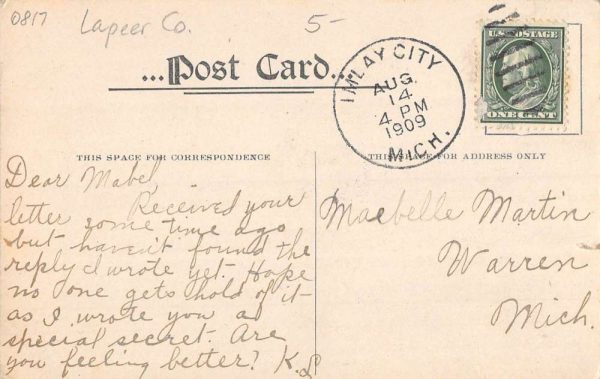 0817
Lapeer Co.
5-
...Post Card...
IMLAY CITY
AUG.
14
4 PM
1909
MICH.
U.S. POSTAGE
ONE CENT
THIS SPACE FOR CORRESPONDENCE
THIS SPACE FOR ADDRESS ONLY
Dear Mabel,
Received your
letter some time ago
but haven't found the
reply I wrote yet. Hope
no one gets hold of it
as I wrote you a
special secret. Are
you feeling better? K.
Maebelle Martin
Warren
Mich.